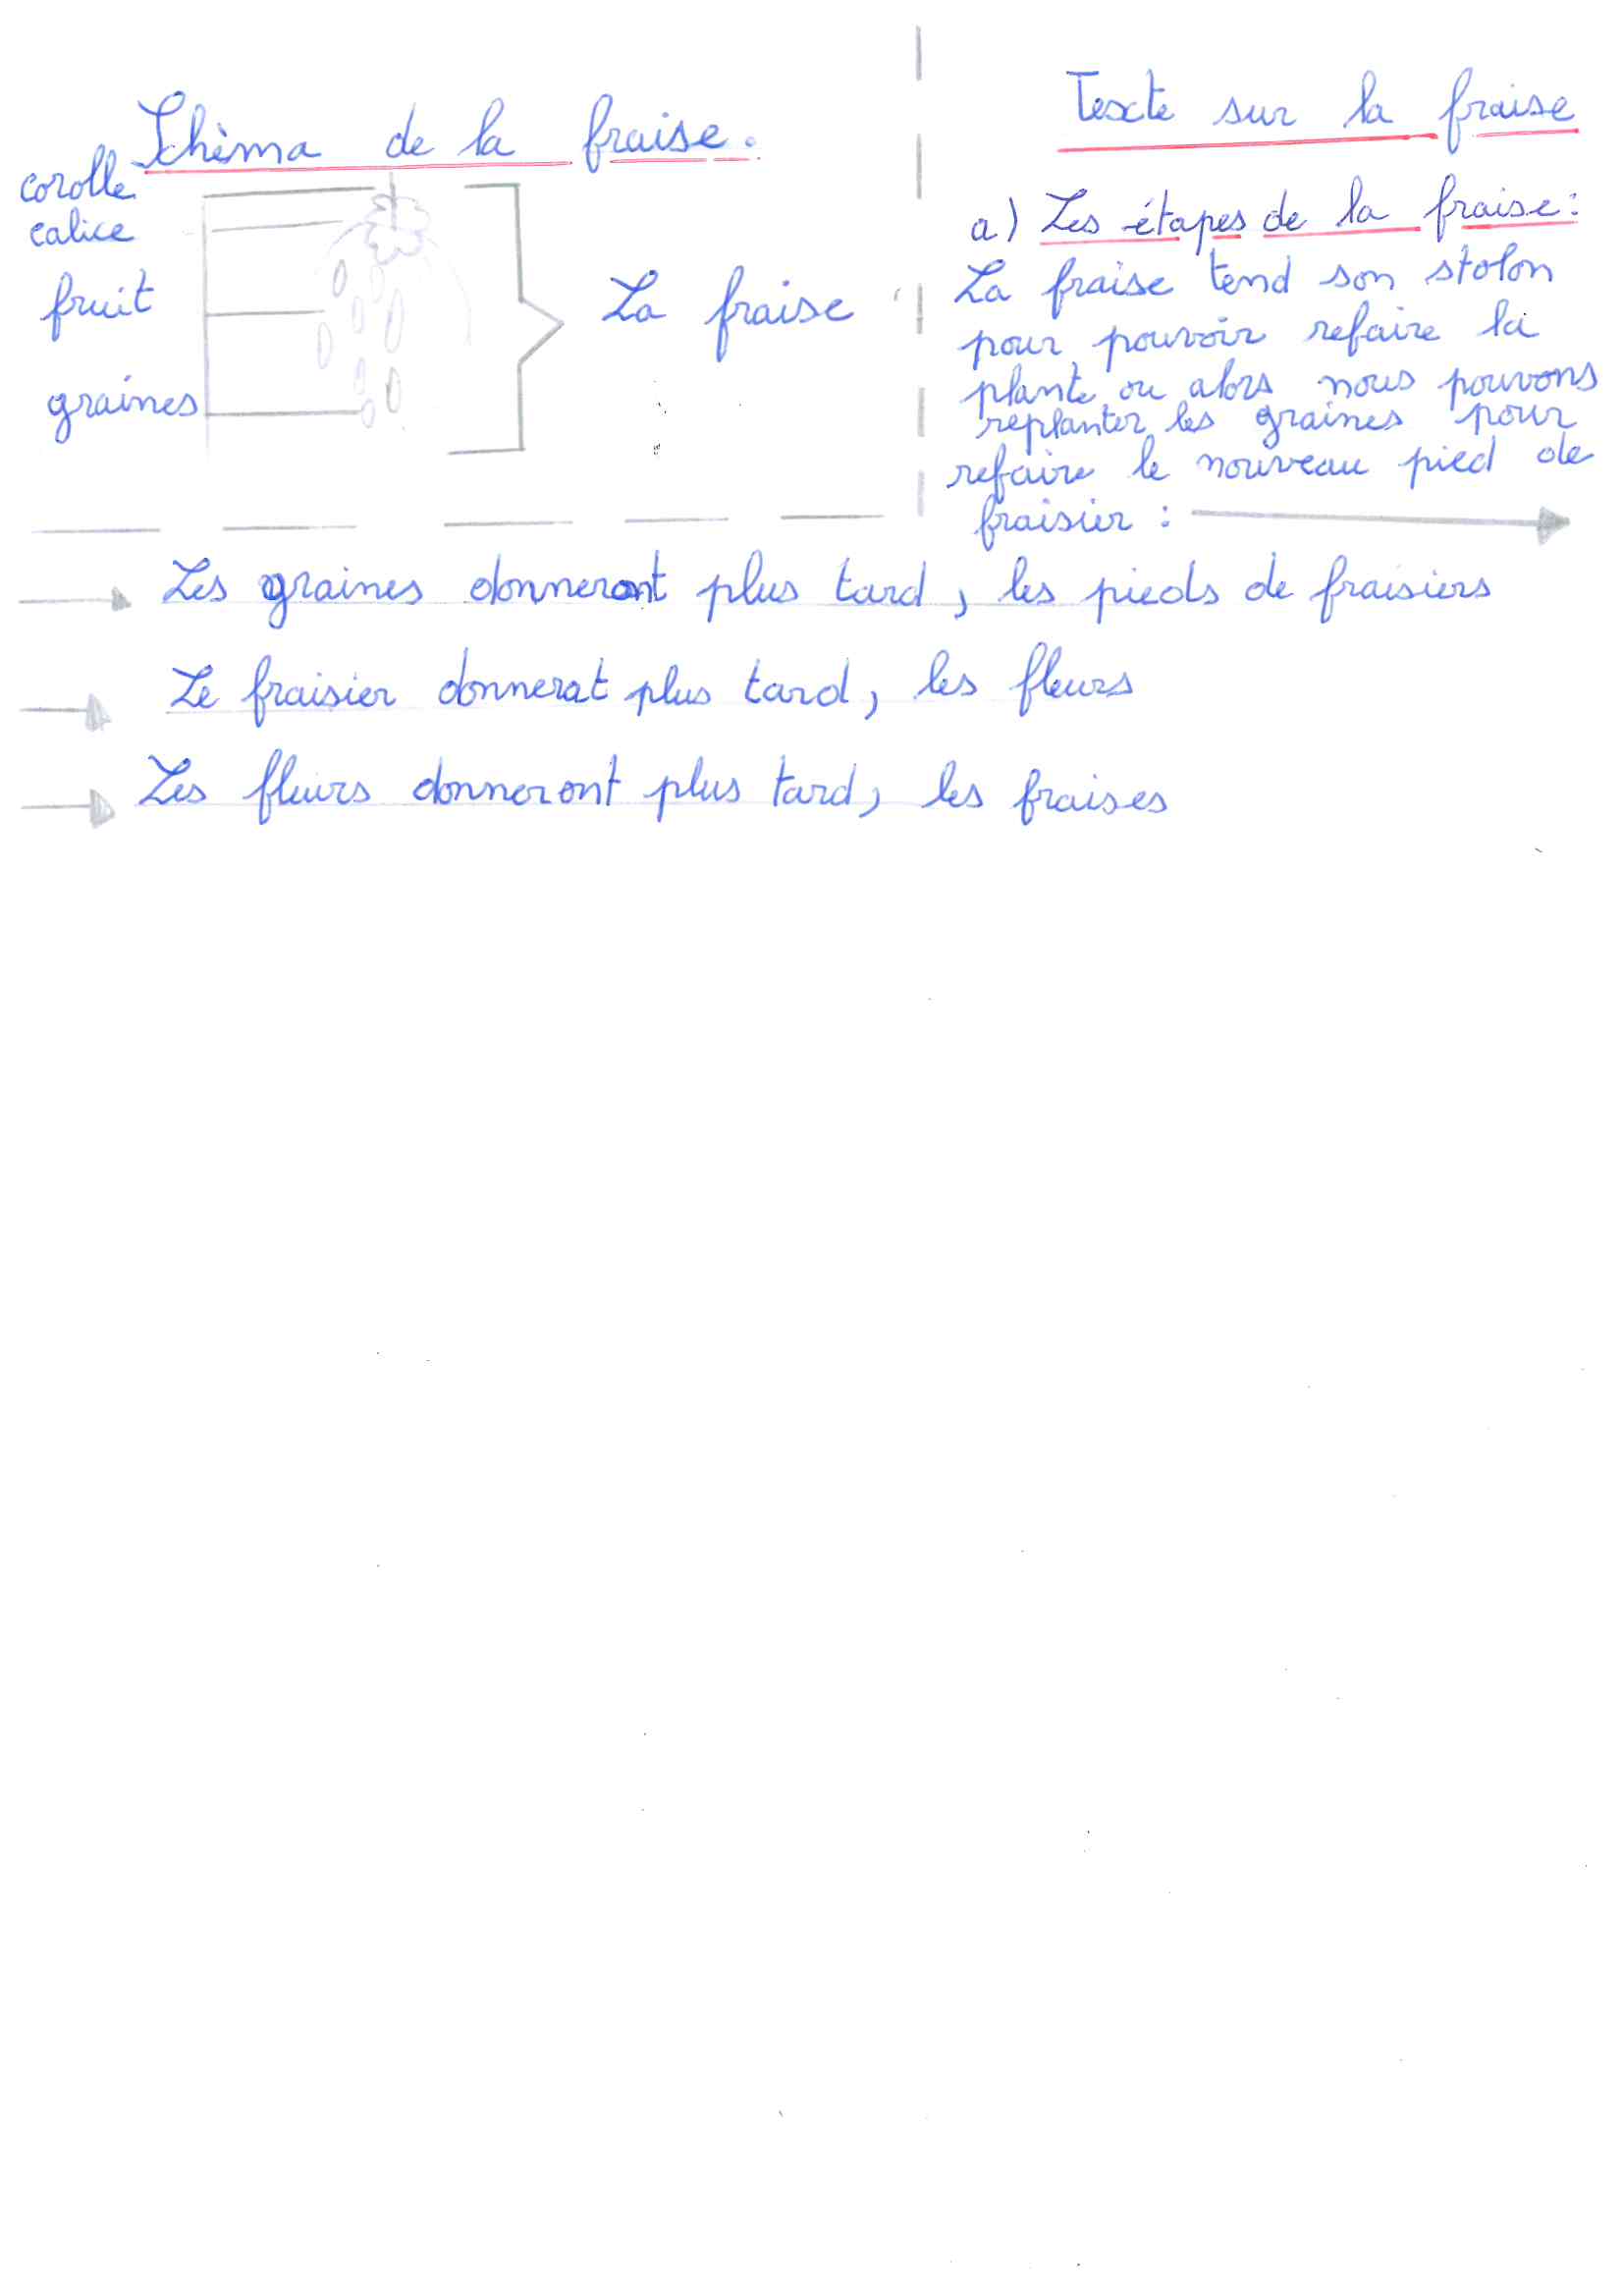 Schèma de la fraise.
corolle
calice
fruit
graines
La fraise
Texte sur la fraise
a) Les étapes de la fraise:
La fraise tend son stolon
pour pouvoir refaire la
plante ou alors nous pouvons
replanter les graines pour
refaire le nouveau pied de
fraisier :
Les graines donneront plus tard, les pieds de fraisiers
Le fraisier donnerat plus tard, les fleurs
Les fleurs donneront plus tard, les fraises